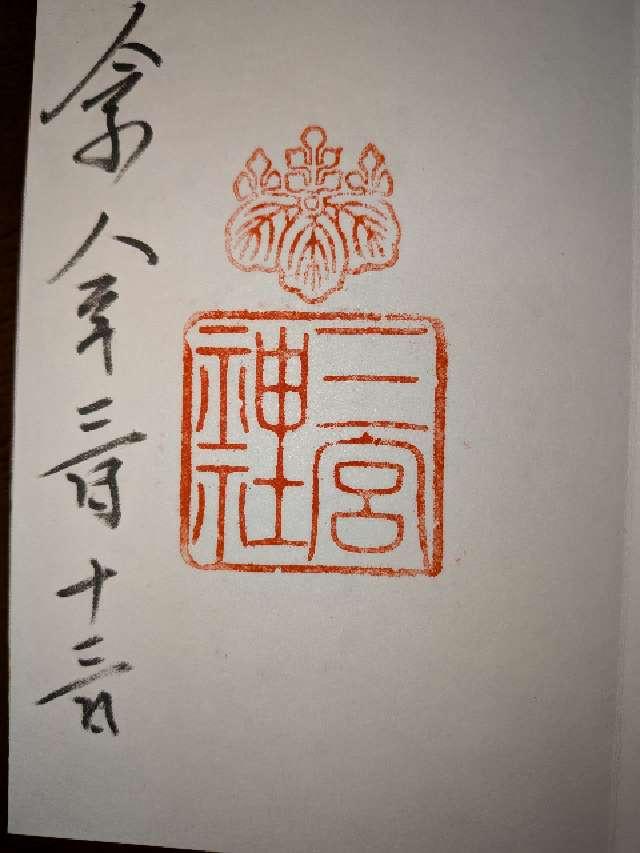 三宮
神社
令和八年三月十三日